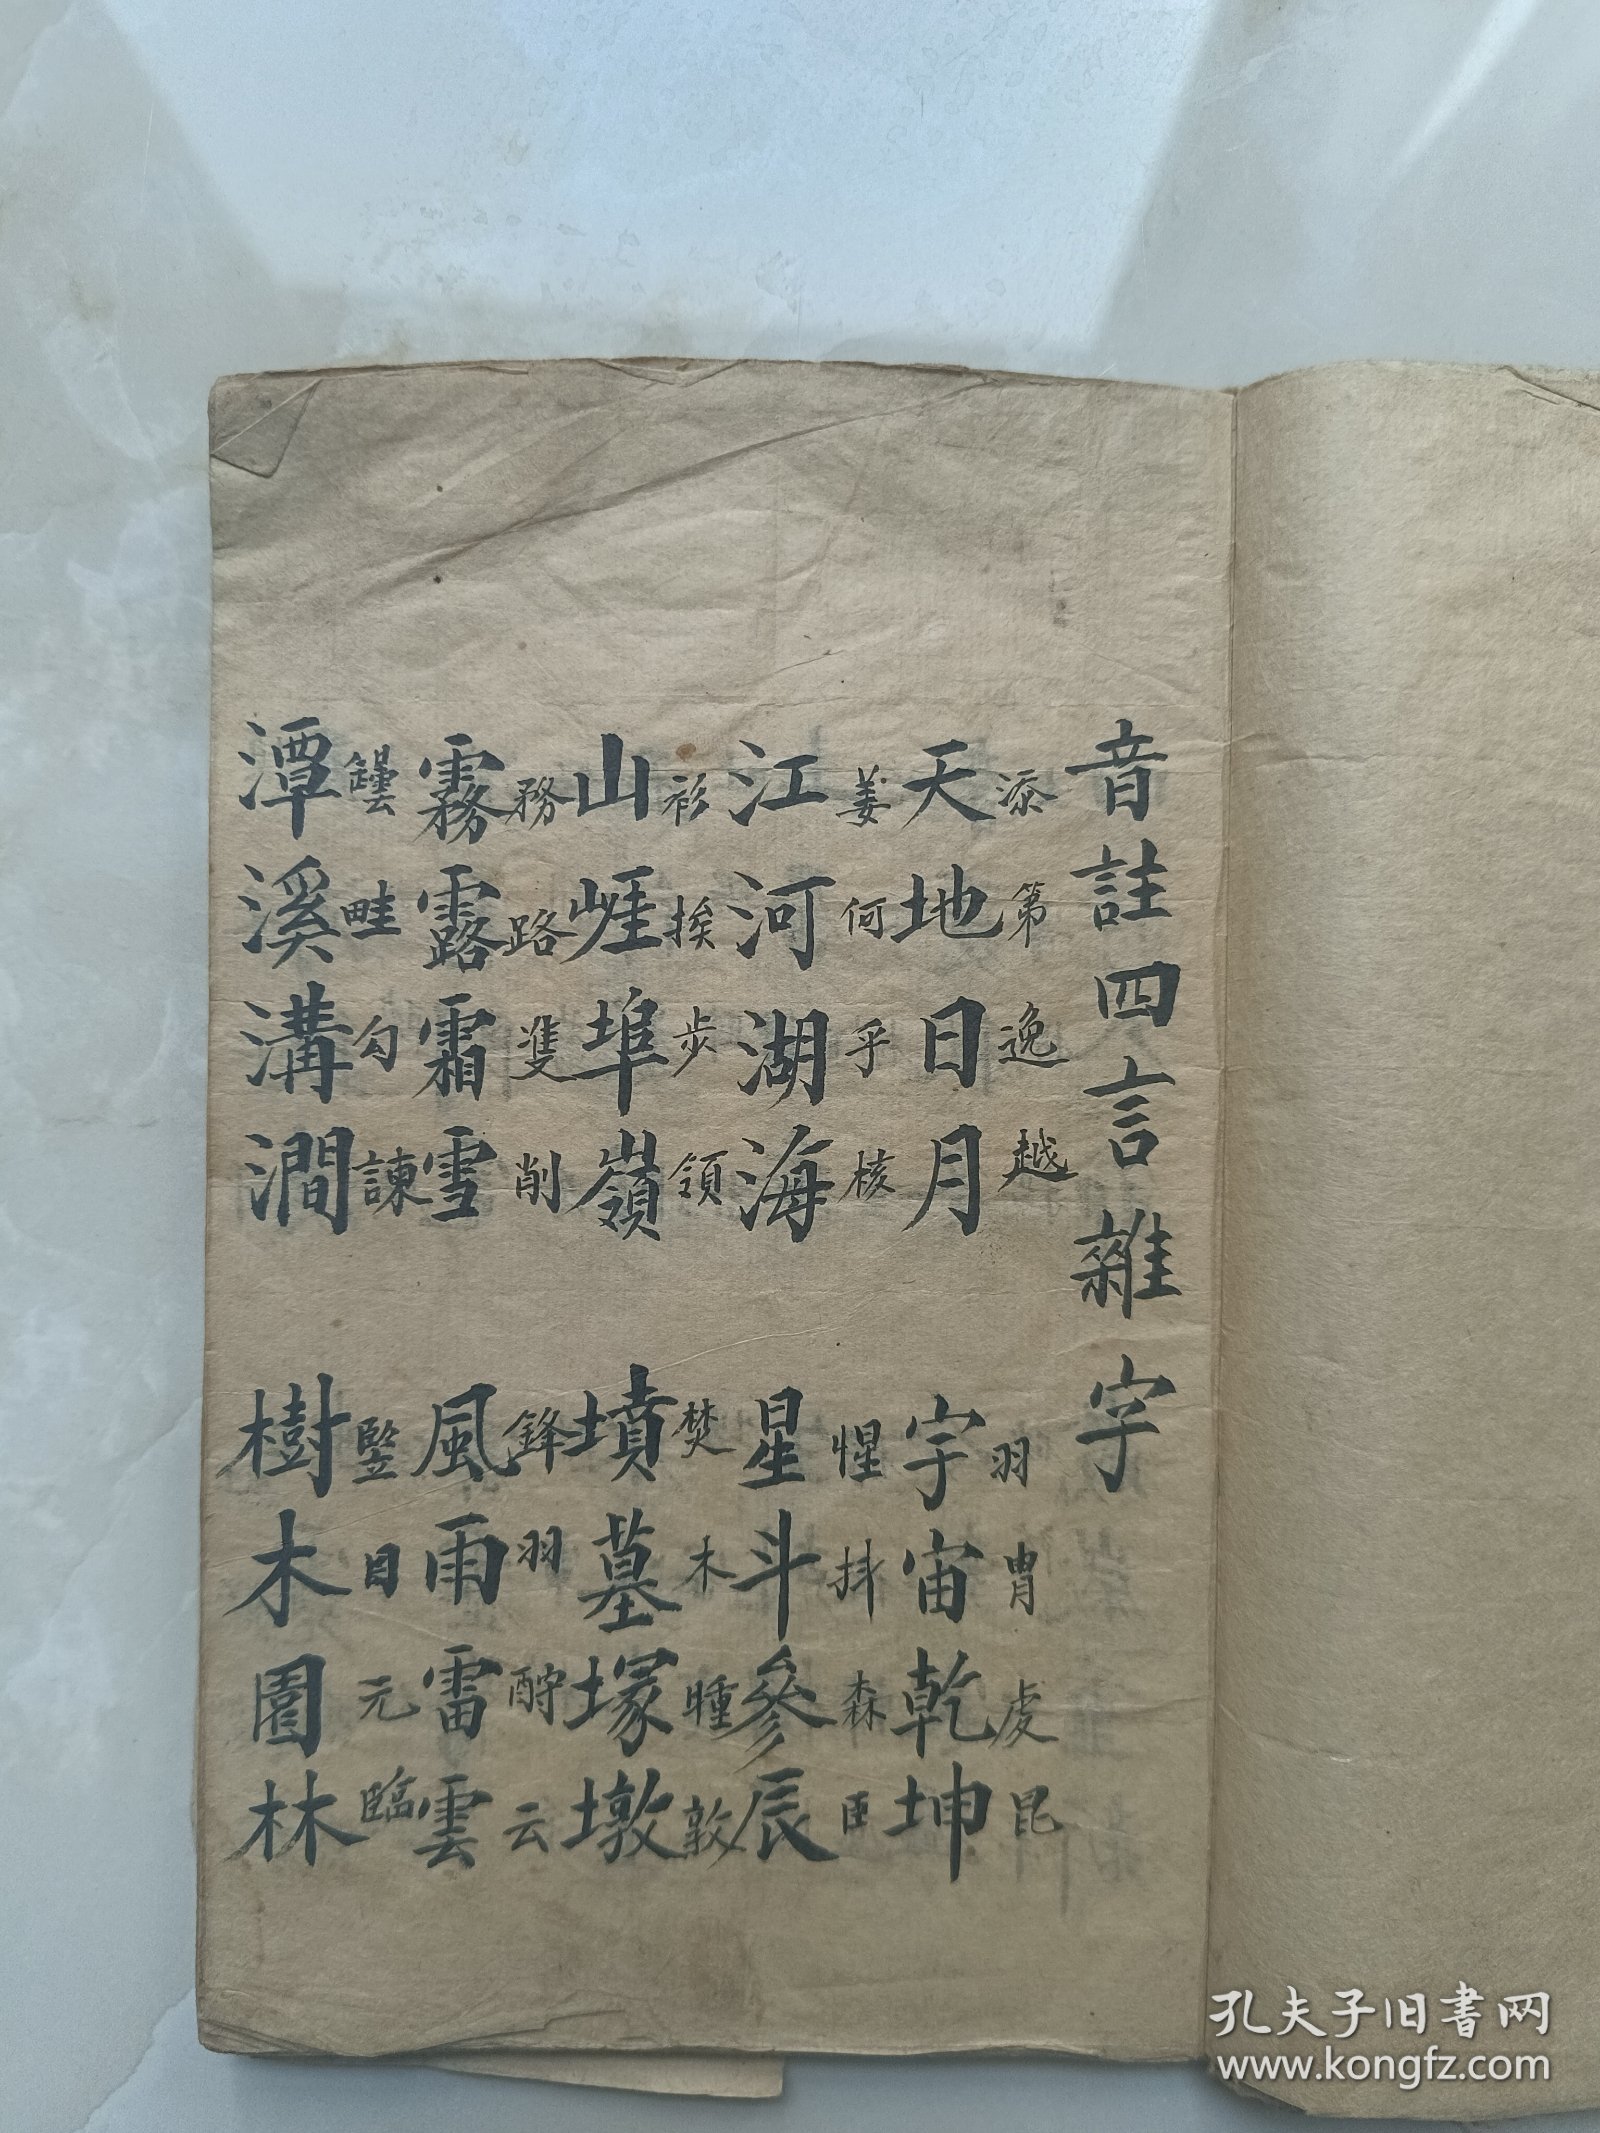 音註四言雜字
添第逸越 羽冑虔昆
天地日月 宇宙乾坤
姜何乎核 惺抖森臣
江河湖海 星斗參辰
衫挨步領 焚木瞳敦
山崕埠嶺 墳墓塚墩
務路雙削 鋒羽云
霧露霜雪 風雨雷雲
罎畦勾諫 竪目元臨
潭溪溝澗 樹木園林
孔夫子旧书网
www.kongfz.com